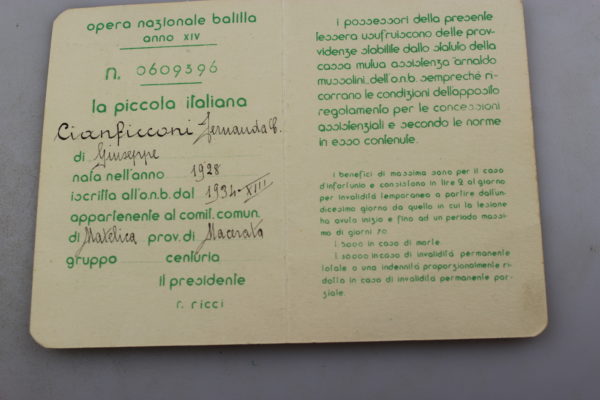 opera nazionale balilla
anno XIV
n. 0609396
la piccola italiana
Cianficconi Fernanda
di Giuseppe
nata nell'anno 1928
iscritta all'o.n.b. dal 1934-XIII
appartenente al comit. comun.
di Matelica prov. di Macerata
gruppo centuria
il presidente
r. ricci
i possessori della presente
tessera usufruiscono delle prov-
videnze stabilite dallo statuto della
cassa mutua assistenza "arnaldo
mussolini" dell'o.n.b. sempreché ri-
corrano le condizioni dell'apposito
regolamento per le concessioni
assistenziali e secondo le norme
in esso contenute.
i benefici di massima sono per il caso
d'infortunio e consistono in lire 2 al giorno
per invalidità temporanea a partire dall'un-
dicesimo giorno da quello in cui la lesione
ha avuto inizio e fino ad un periodo massi-
mo di giorni 70
l 5000 in caso di morte
l 30000 in caso di invalidità permanente
totale o una indennità proporzionalmente ri-
dotta in caso di invalidità permanente par-
ziale.